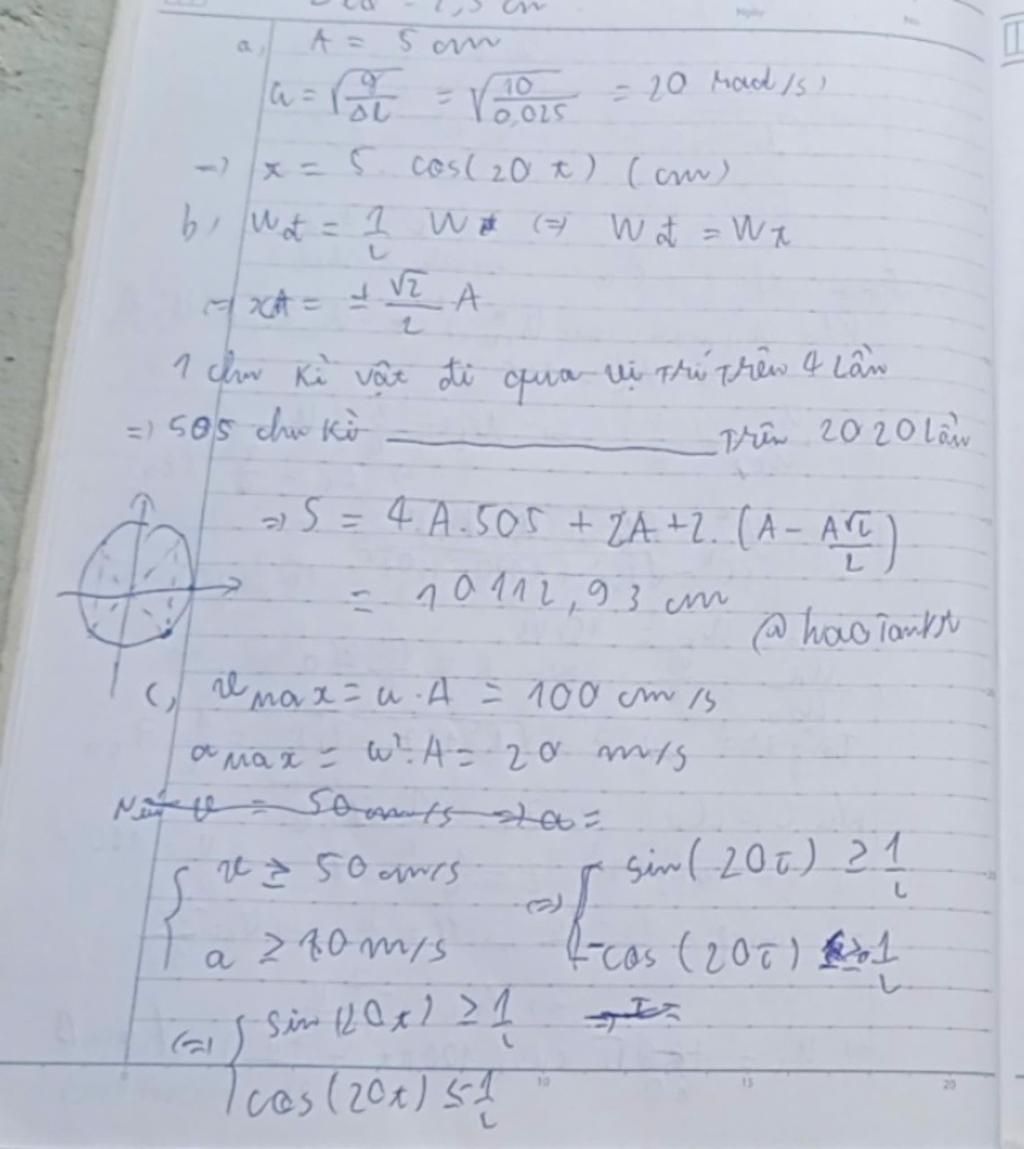 a, A = 5 cm
ω = √(g/Δl) = √(10/0,025) = 20 rad/s
→ x = 5 cos(20t) (cm)
b, Wđ = 1/2 W ⇔ Wđ = Wt
⇒ xA = ± √2/2 A
1 chu kì vật đi qua vị trí trên 4 lần
⇒ 505 chu kì ——— trên 2020 lần
⇒ S = 4A.505 + 2A + 2.(A - A√2/2)
= 10112,93 cm
@haotankst
c, v max = ω.A = 100 cm/s
a max = ω².A = 20 m/s
Nếu v = 50 cm/s ⇒ a =
{ v ≥ 50 cm/s ⇔ { sin(20t) ≥ 1/2
a ≥ 10 m/s -cos(20t) ≥ 1/2
⇔ { sin(20t) ≥ 1/2 ⇒ t =
cos(20t) ≤ -1/2
10 15 20